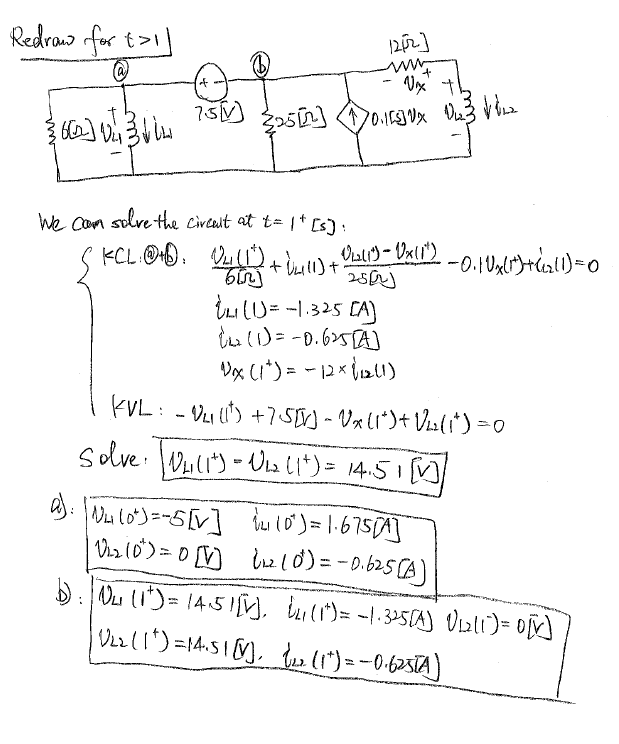 Redraw for t>1
ⓐ
ⓑ
12[Ω]
+ -
- Vx +
7.5[V]
6[Ω]
+ VL1 -
iL1
25[Ω]
0.1[S]Vx
+ VL2 -
iL2
We can solve the circuit at t=1⁺[s]:
KCL ⓐ+ⓑ: VL1(1⁺)/6[Ω] + iL1(1) + (VL2(1⁺)-Vx(1⁺))/25[Ω] - 0.1Vx(1⁺)+iL2(1)=0
iL1(1)= -1.325 [A]
iL2(1)= -0.625[A]
Vx(1⁺)= -12×iL2(1)
KVL: -VL1(1⁺) +7.5[V] - Vx(1⁺)+VL2(1⁺)=0
Solve: VL1(1⁺)=VL2(1⁺)= 14.51[V]
a): VL1(0⁺)=-5[V] iL1(0⁺)=1.675[A]
VL2(0⁺)=0[V] iL2(0⁺)=-0.625[A]
b): VL1(1⁺)=14.51[V], iL1(1⁺)=-1.325[A] VL2(1⁻)=0[V]
VL2(1⁺)=14.51[V], iL2(1⁺)=-0.625[A]